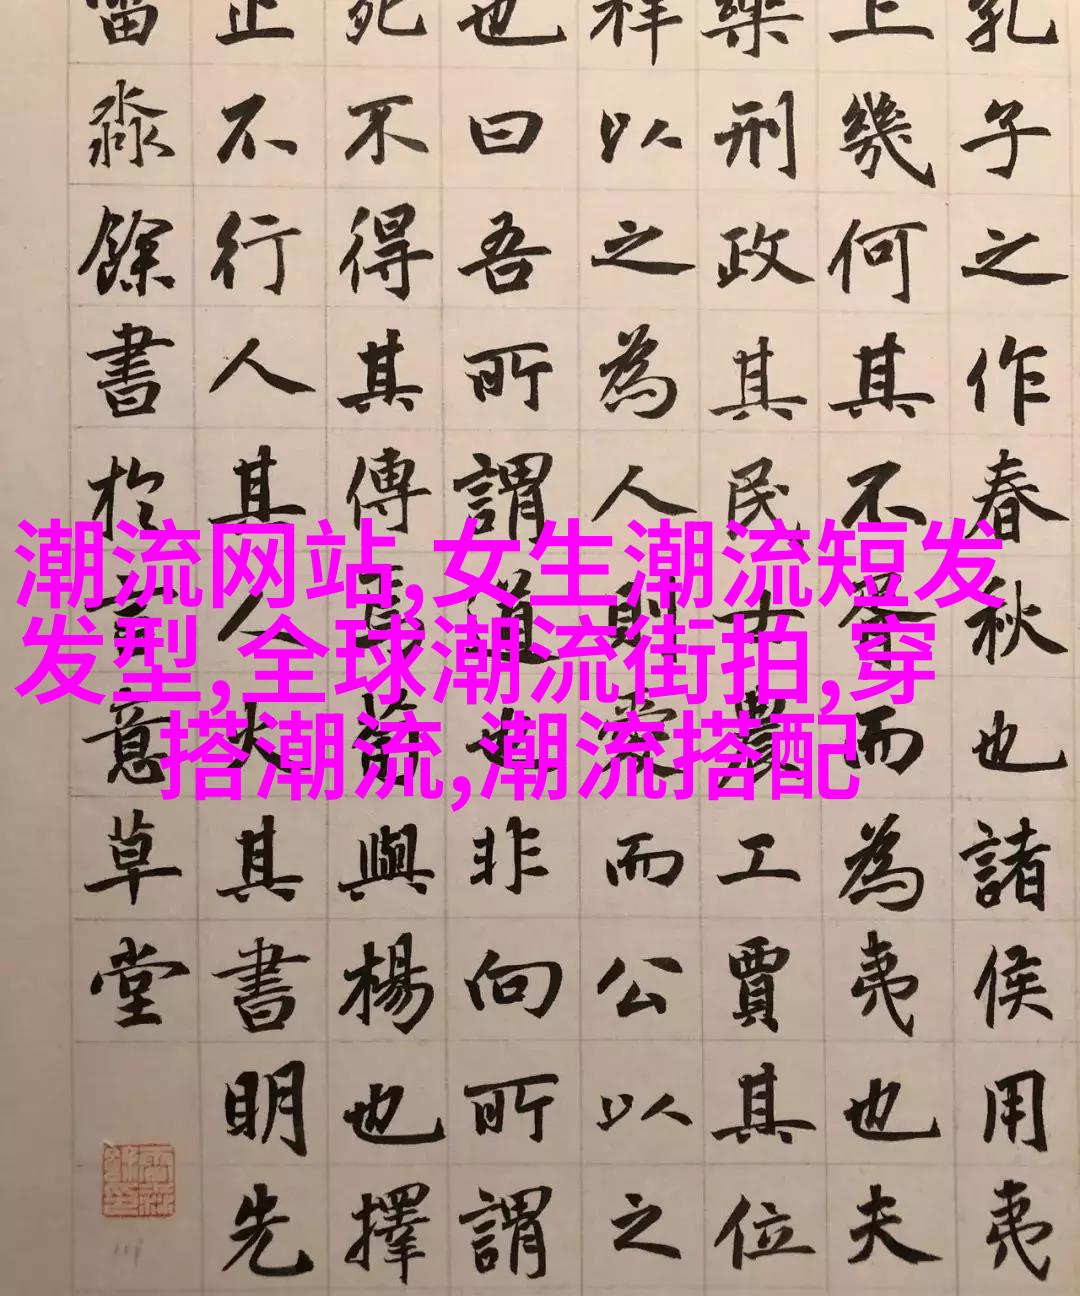 孔子之作春秋也諸侯用夷
上幾何其不而為夷也夫
樂刑政其民士農工賈其位
祥以之為人則愛而公以之
也曰吾所謂道也非向所謂
死不得其傳焉荀與楊也擇
止不行人其人火其書明先
淼餘書於意草堂
潮流网站,女生潮流短发
发型,全球潮流街拍,穿
搭潮流,潮流搭配